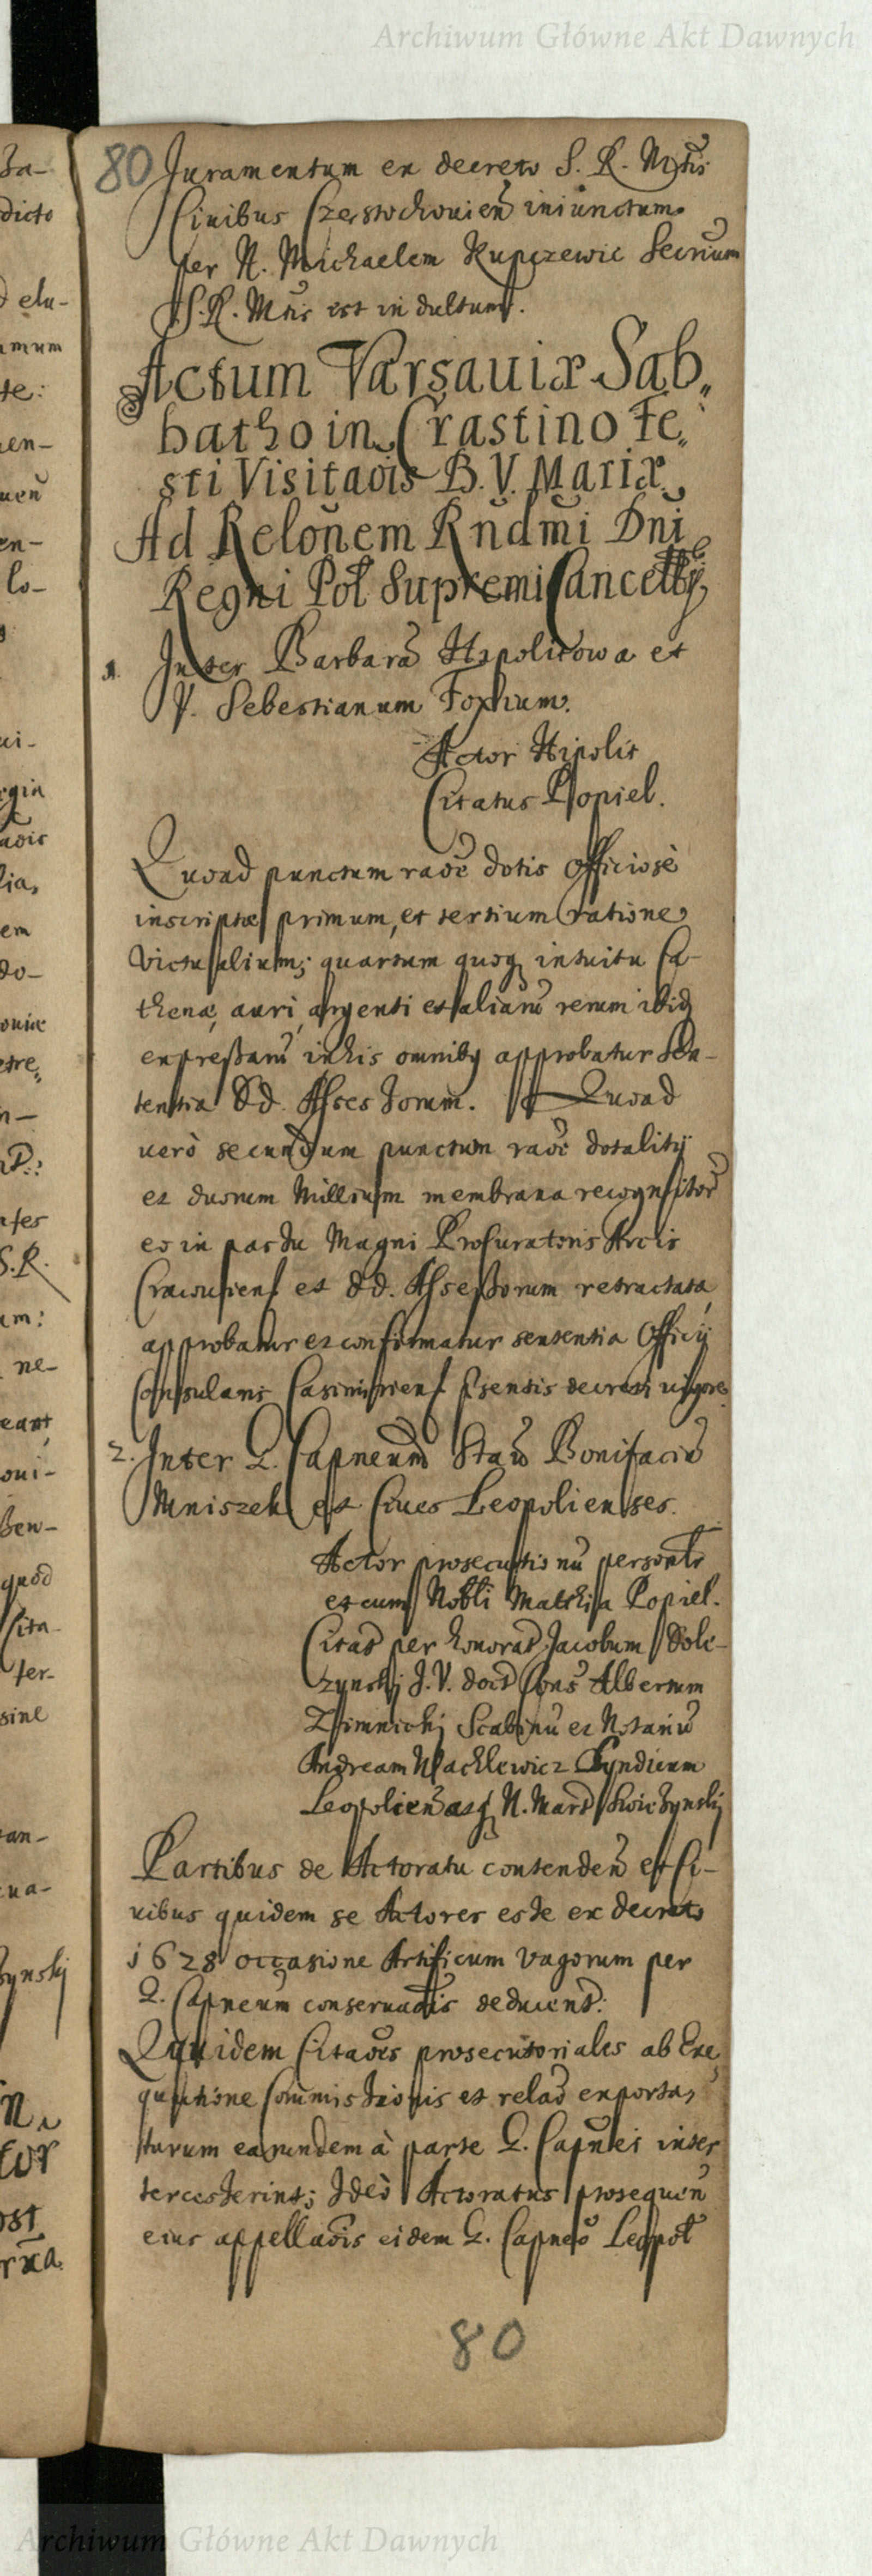 Archiwum Główne Akt Dawnych
80 Iuramentum ex decreto S. R. Mtis
Ciuibus Czestochouien iniunctum
per N. Michaelem Kupczewic Secrium
S. R. Mtis est indultum.
Actum Varsauiæ Sab„
batho in Crastino Fe„
sti Visitaōis B. V. Mariæ
Ad Reloñem Rñdmi Dñi
Regni Pol Supremi Cancellrij
1. Inter Barbarā Hipolitowa et
V. Sebestianum Foxium.
Actor Hipolit
Citatus Popiel.
Quoad punctum raōe dotis officiosè
inscriptæ primum, et tertium ratione
victualium; quartum quoq intuitu Ca-
thenæ, auri, argenti et aliarū rerum ibid
expressarū in his omnibq approbatur Sen-
tentia Dd. Assessorum. Quoad
verò secundum punctum raōe dotalitij
et duorum Millium membrana recognitor
eo in passu Magni Procuratoris Arcis
Cracouiens et DD. Assessorum retractata
approbatur et confirmatur sententia Officij
Consularis Casimiriens Psentis decreti vigore
2. Inter G. Capneum Staō Bonifaciū
Mniszek et Ciues Leopolienses.
Actor prosecutionū personlr
et cum Nobli Mathia Popiel.
Citat per honorat Jacobum Sole-
zynskj J. V. doct Cons Albertum
Zimnickj Scabinū et Notariū
Andream Wachlewicz Syndicum
Leopolien asq N. Mart Swiczynskj
Partibus de Actoratu contenden et Ci-
uibus quidem se Actores esse ex decreto
1628 occasione Artificum vagorum per
G. Capneum conseruatis deducent:
Qquidem Citaōes prosecutoriales ab Exe„
qutione Commissionis et relaō exporta„
tarum earundem à parte G. Capnei inter
tercesserint; Ideò Actoratus prosequen
eius appellaōis eidem G. Capneo Leopol
80
Archiwum Główne Akt Dawnych